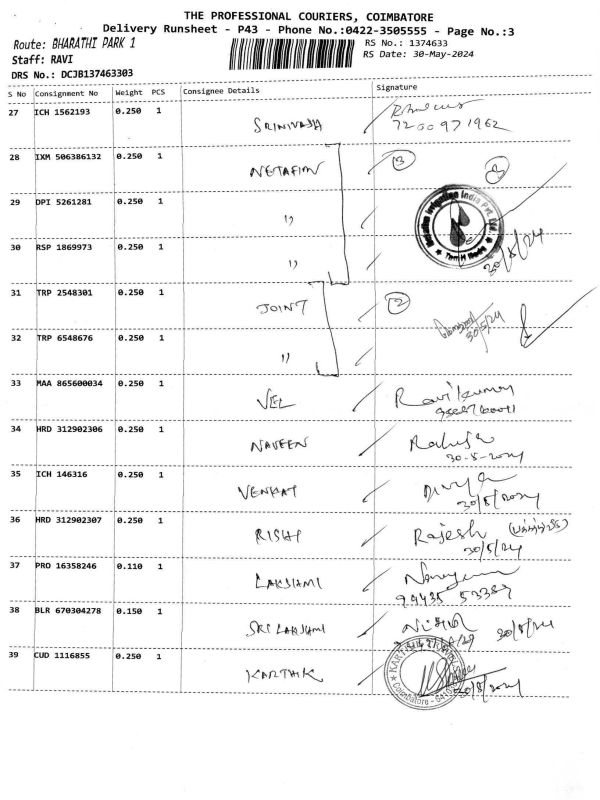 THE PROFESSIONAL COURIERS, COIMBATORE
Delivery Runsheet - P43 - Phone No.:0422-3505555 - Page No.:3
Route: BHARATHI PARK 1
RS No.: 1374633
Staff: RAVI
RS Date: 30-May-2024
DRS No.: DCJB137463303
S No Consignment No Weight PCS Consignee Details Signature
27 ICH 1562193 0.250 1 SRINIVASA
7200971962
28 IXM 506386132 0.250 1 NETAFIM 3
29 DPI 5261281 0.250 1 "
30 RSP 1869973 0.250 1 "
30/5/24
31 TRP 2548301 0.250 1 JOINT 2
30/5/24
32 TRP 6548676 0.250 1 "
33 MAA 865600034 0.250 1 VEL Ravikumar
34 HRD 312902306 0.250 1 NAVEEN
30-5-2024
35 ICH 146316 0.250 1 VENKAT Divya
30/5/2024
36 HRD 312902307 0.250 1 RISHI Rajesh
30/5/24
37 PRO 16358246 0.110 1 LAKSHMI
99435 53389
38 BLR 670304278 0.150 1 SRI LAKSHMI
30/5/24
39 CUD 1116855 0.250 1 KARTHIK
30/5/2024